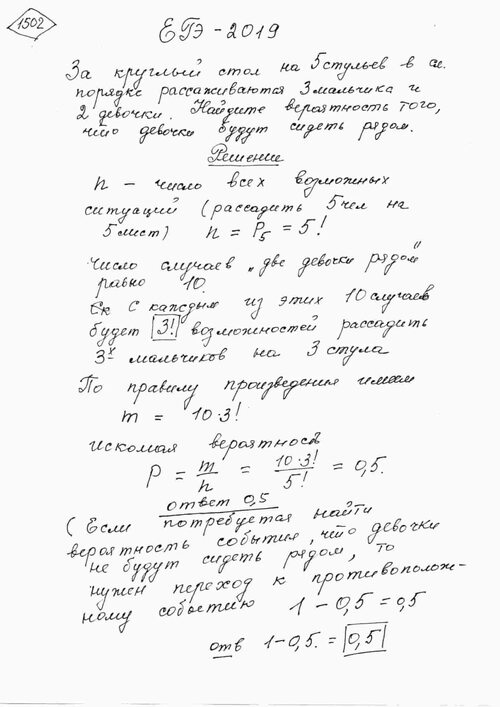 1502
ЕГЭ - 2019
За круглый стол на 5 стульев в сл.
порядке рассаживаются 3 мальчика и
2 девочки. Найдите вероятность того,
что девочки будут сидеть рядом.
Решение
n - число всех возможных
ситуаций (рассадить 5 чел на
5 мест) n = P₅ = 5!
Число случаев „две девочки рядом"
равно 10.
С каждым из этих 10 случаев
будет 3! возможностей рассадить
3х мальчиков на 3 стула
По правилу произведения имеем
m = 10·3!
искомая вероятность
P = m/n = 10·3!/5! = 0,5.
ответ 0,5
(Если потребуется найти
вероятность события, что девочки
не будут сидеть рядом, то
нужен переход к противополож-
ному событию 1 - 0,5 = 0,5
отв 1-0,5. = 0,5